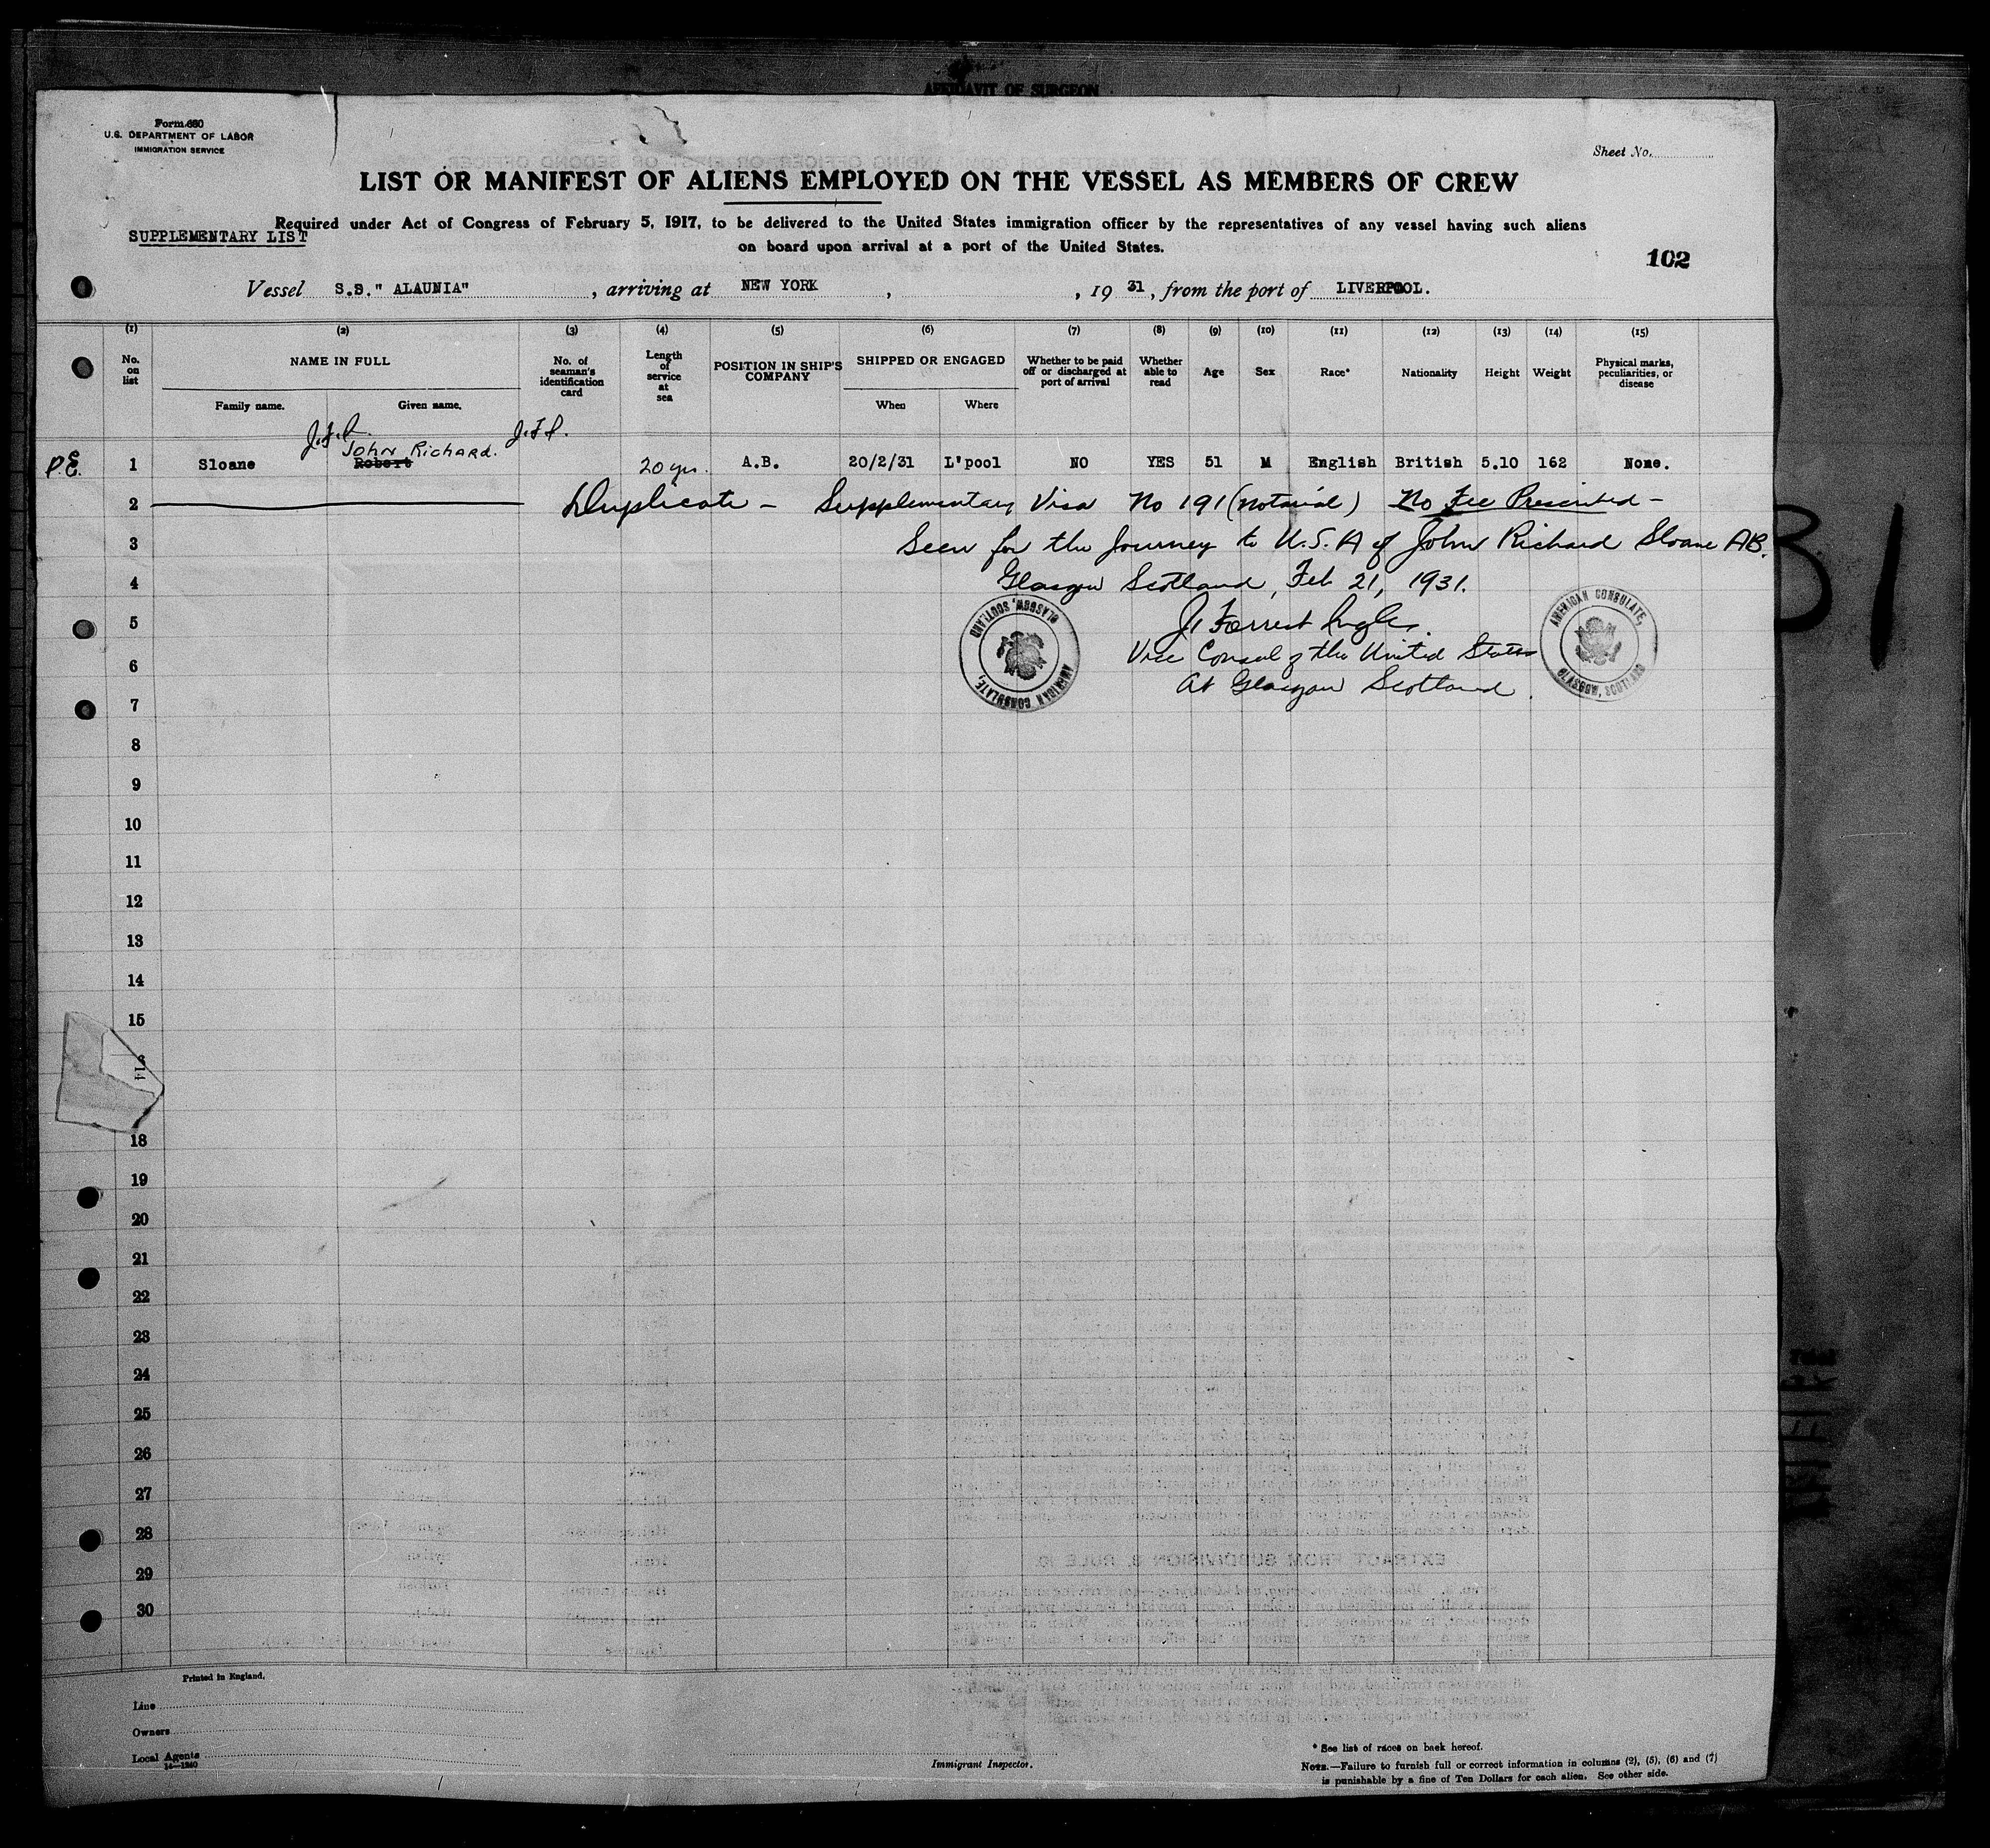 AFFIDAVIT OF SURGEON
Form 680
U.S. DEPARTMENT OF LABOR
IMMIGRATION SERVICE
Sheet No.
LIST OR MANIFEST OF ALIENS EMPLOYED ON THE VESSEL AS MEMBERS OF CREW
Required under Act of Congress of February 5, 1917, to be delivered to the United States immigration officer by the representatives of any vessel having such aliens
SUPPLEMENTARY LIST
on board upon arrival at a port of the United States.
102
Vessel S.S." ALAUNIA" , arriving at NEW YORK , , 19 31, from the port of LIVERPOOL.
(1) (2) (3) (4) (5) (6) (7) (8) (9) (10) (11) (12) (13) (14) (15)
No. on list
NAME IN FULL
Family name. Given name.
No. of seaman's identification card
Length of service at sea
POSITION IN SHIP'S COMPANY
SHIPPED OR ENGAGED
When Where
Whether to be paid off or discharged at port of arrival
Whether able to read
Age
Sex
Race*
Nationality
Height
Weight
Physical marks, peculiarities, or disease
J.F.I. J.F.I.
John Richard.
P.E. 1 Sloane Robert 20 yrs. A.B. 20/2/31 L'pool NO YES 51 M English British 5.10 162 None.
2 Duplicate - Supplementary Visa No 191 (notarial) No Fee Prescribed -
3 Seen for the Journey to U.S.A of John Richard Sloane AB.
4 Glasgow Scotland, Feb 21, 1931.
5 J. Forrest Ingle.
6 Vice Consul of the United States
7 At Glasgow Scotland.
AMERICAN CONSULATE, GLASGOW, SCOTLAND
AMERICAN CONSULATE, GLASGOW, SCOTLAND
31
8
9
10
11
12
13
14
15
18
19
20
21
22
23
24
25
26
27
28
29
30
Printed in England.
Line
Owners
Local Agents
14—1240
Immigrant Inspector.
* See list of races on back hereof.
NOTE.—Failure to furnish full or correct information in columns (2), (5), (6) and (7)
is punishable by a fine of Ten Dollars for each alien. See other side.